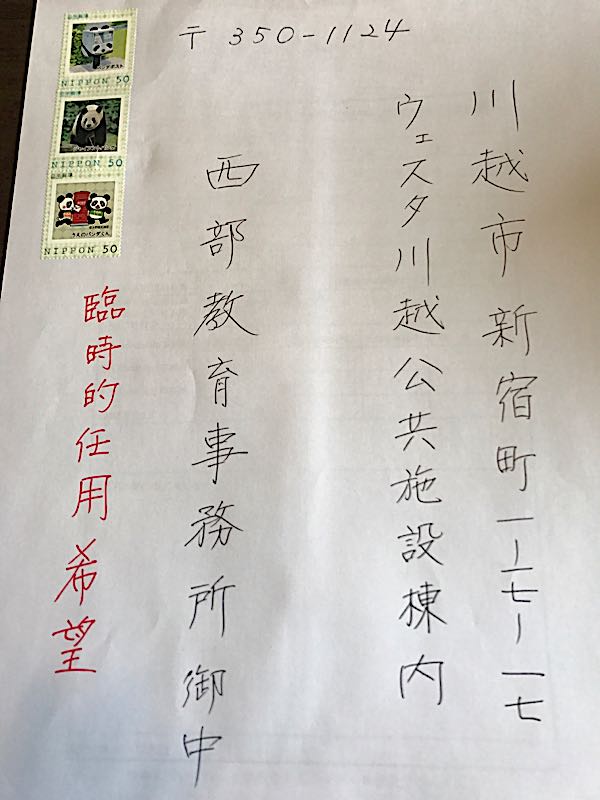 〒350-1124
川越市新宿町一ー一七ー一七
ウェスタ川越公共施設棟内
西部教育事務所御中
臨時的任用希望
パンダポスト
NIPPON 50
NIPPON 50
うえのパンダくん
NIPPON 50